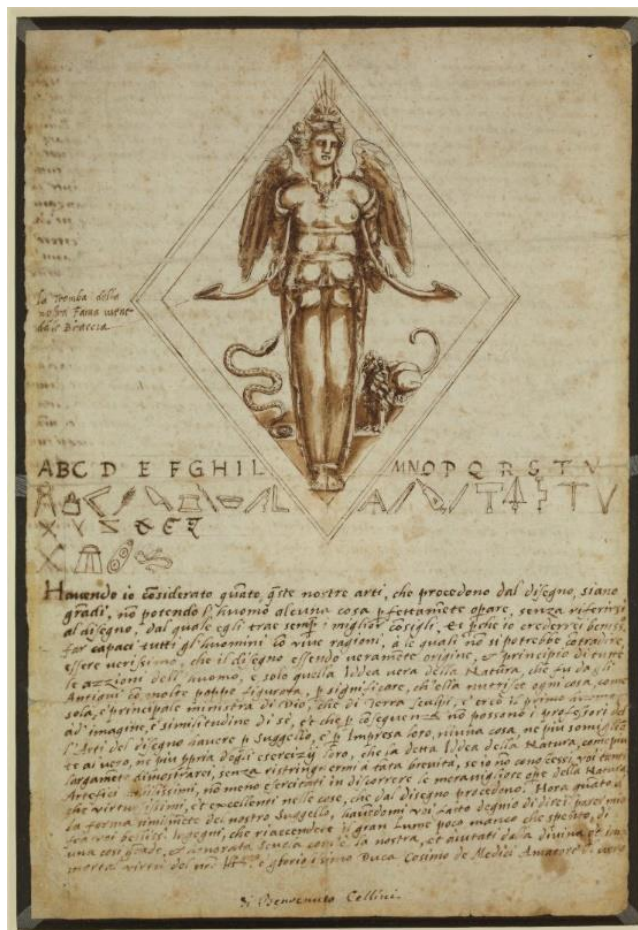 la Tromba della
nostra Fama viene
dale Braccia
ABCD E FGHIL MNOPQRSTV
X Y Z & Ꞓ
Havendo io cōsiderato quāto, q̄ste nostre arti, che procedono dal disegno, siano
grādi, nō potendo l'huomo alcuna cosa p̄fettamēte opare, senza riferirsi
al disegno, dal quale egli trae semp̄ i miglior cōsigli, et p̄che io crederrei beniss.
far capaci tutti gl'huomini cō vive ragioni, à le quali nō si potrebbe cōtradire,
essere verissimo, che il disegno essendo veramēte origine, et principio di tutte
le azzioni dell'huomo, e solo quella Iddea vera della Natura, che fu da gli
Antiqui cō molte poppe figurata, p significare, ch'ella nutrisce ogni cosa, come
sola, e principale ministra di Dio, che di Terra sculpì, e creò il primo
ad' imagine, e similitudine di sè, et che p cōsequenza nō possano i professori del
l'Arti del disegno havere p Suggello, e p Impresa loro, niuna cosa, ne piu
te al vero, ne piu ppria degli esercizij loro, che la detta Iddea della Natura,
largamēte dimostrarei, senza ristringnermi a tāta brevità, se io nō conoscessi voi tanti
Artefici nō meno esercitati in discorrere le meravigliose ope della Natura
che virtuosissimi, et excellenti nelle cose, che dal disegno procedono. Hora quāto
la forma del nostro Suggello, havēdomi voi fatto degnio di dire il parer mio
frà voi bellissi. Ingegni, che riaccendere il gran Lume poco manco che spento, di
una così grāde, et honorata Scuola com'è la nostra, et aiutati dalla divina, et
mortal virtù del e gloriosissimo Duca Cosimo de Medici Amatore
di Benvenuto Cellini